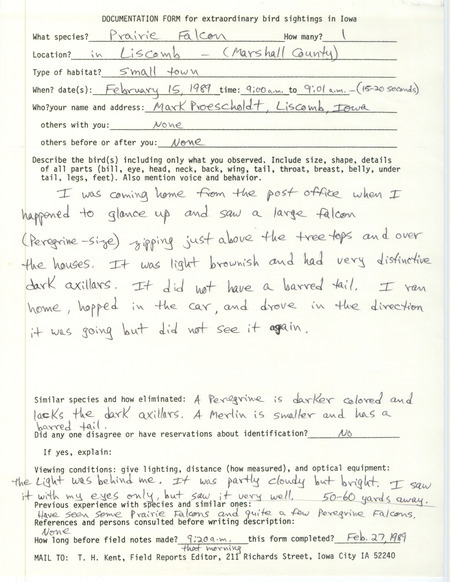 DOCUMENTATION FORM for extraordinary bird sightings in Iowa
What species? Prairie Falcon How many? 1
Location? in Liscomb - (Marshall County)
Type of habitat? small town
When? date(s): February 15, 1989 time: 9:00 a.m. to 9:01 a.m. - (15-20 seconds)
Who?your name and address: Mark Proescholdt, Liscomb, Iowa
others with you: None
others before or after you: None
Describe the bird(s) including only what you observed. Include size, shape, details
of all parts (bill, eye, head, neck, back, wing, tail, throat, breast, belly, under
tail, legs, feet). Also mention voice and behavior.
I was coming home from the post office when I
happened to glance up and saw a large falcon
(Peregrine-size) zipping just above the tree tops and over
the houses. It was light brownish and had very distinctive
dark axillars. It did not have a barred tail. I ran
home, hopped in the car, and drove in the direction
it was going but did not see it again.
Similar species and how eliminated: A Peregrine is darker colored and
lacks the dark axillars. A Merlin is smaller and has a
barred tail.
Did any one disagree or have reservations about identification? No
If yes, explain:
Viewing conditions: give lighting, distance (how measured), and optical equipment:
the Light was behind me. It was partly cloudy but bright. I saw
it with my eyes only, but saw it very well. 50-60 yards away.
Previous experience with species and similar ones:
Have seen some Prairie Falcons and quite a few Peregrine Falcons.
References and persons consulted before writing description:
None
How long before field notes made? 9:20 a.m. this form completed? Feb. 27, 1989
that morning
MAIL TO: T. H. Kent, Field Reports Editor, 211 Richards Street, Iowa City IA 52240